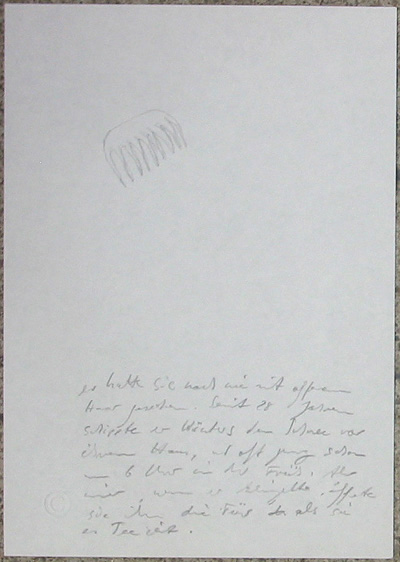 er hatte sie noch nie mit offenem
Haar gesehen. Seit 28 Jahren
schippte er Winters den Schnee vor
ihrem Haus, und oft ging schon
um 6 Uhr in der Früh. Aber
nur, wenn er klingelte, öffnete
sie ihm die Tür als sie
©